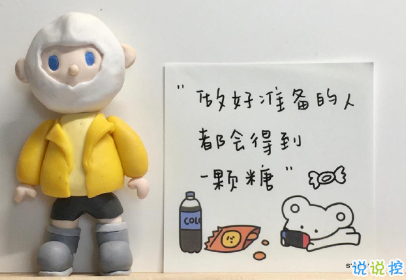 "做好准备的人
都会得到
一颗糖"
COLA
说说控